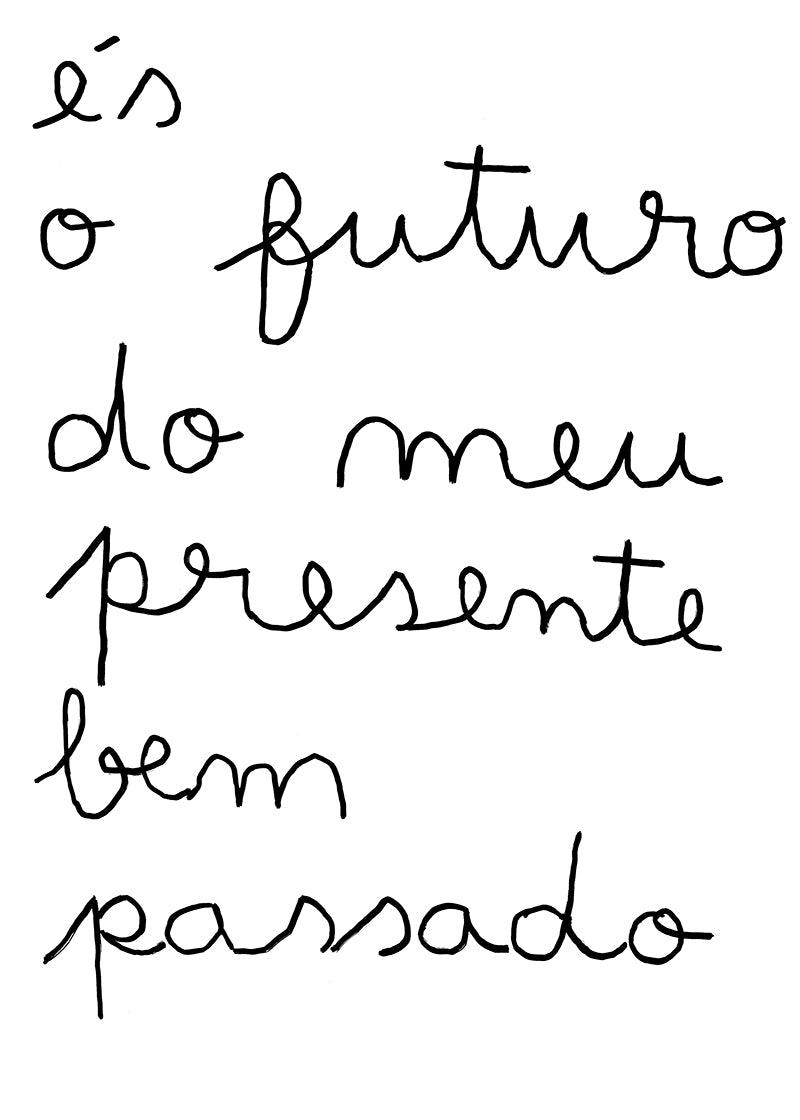 és
o futuro
do meu
presente
bem
passado